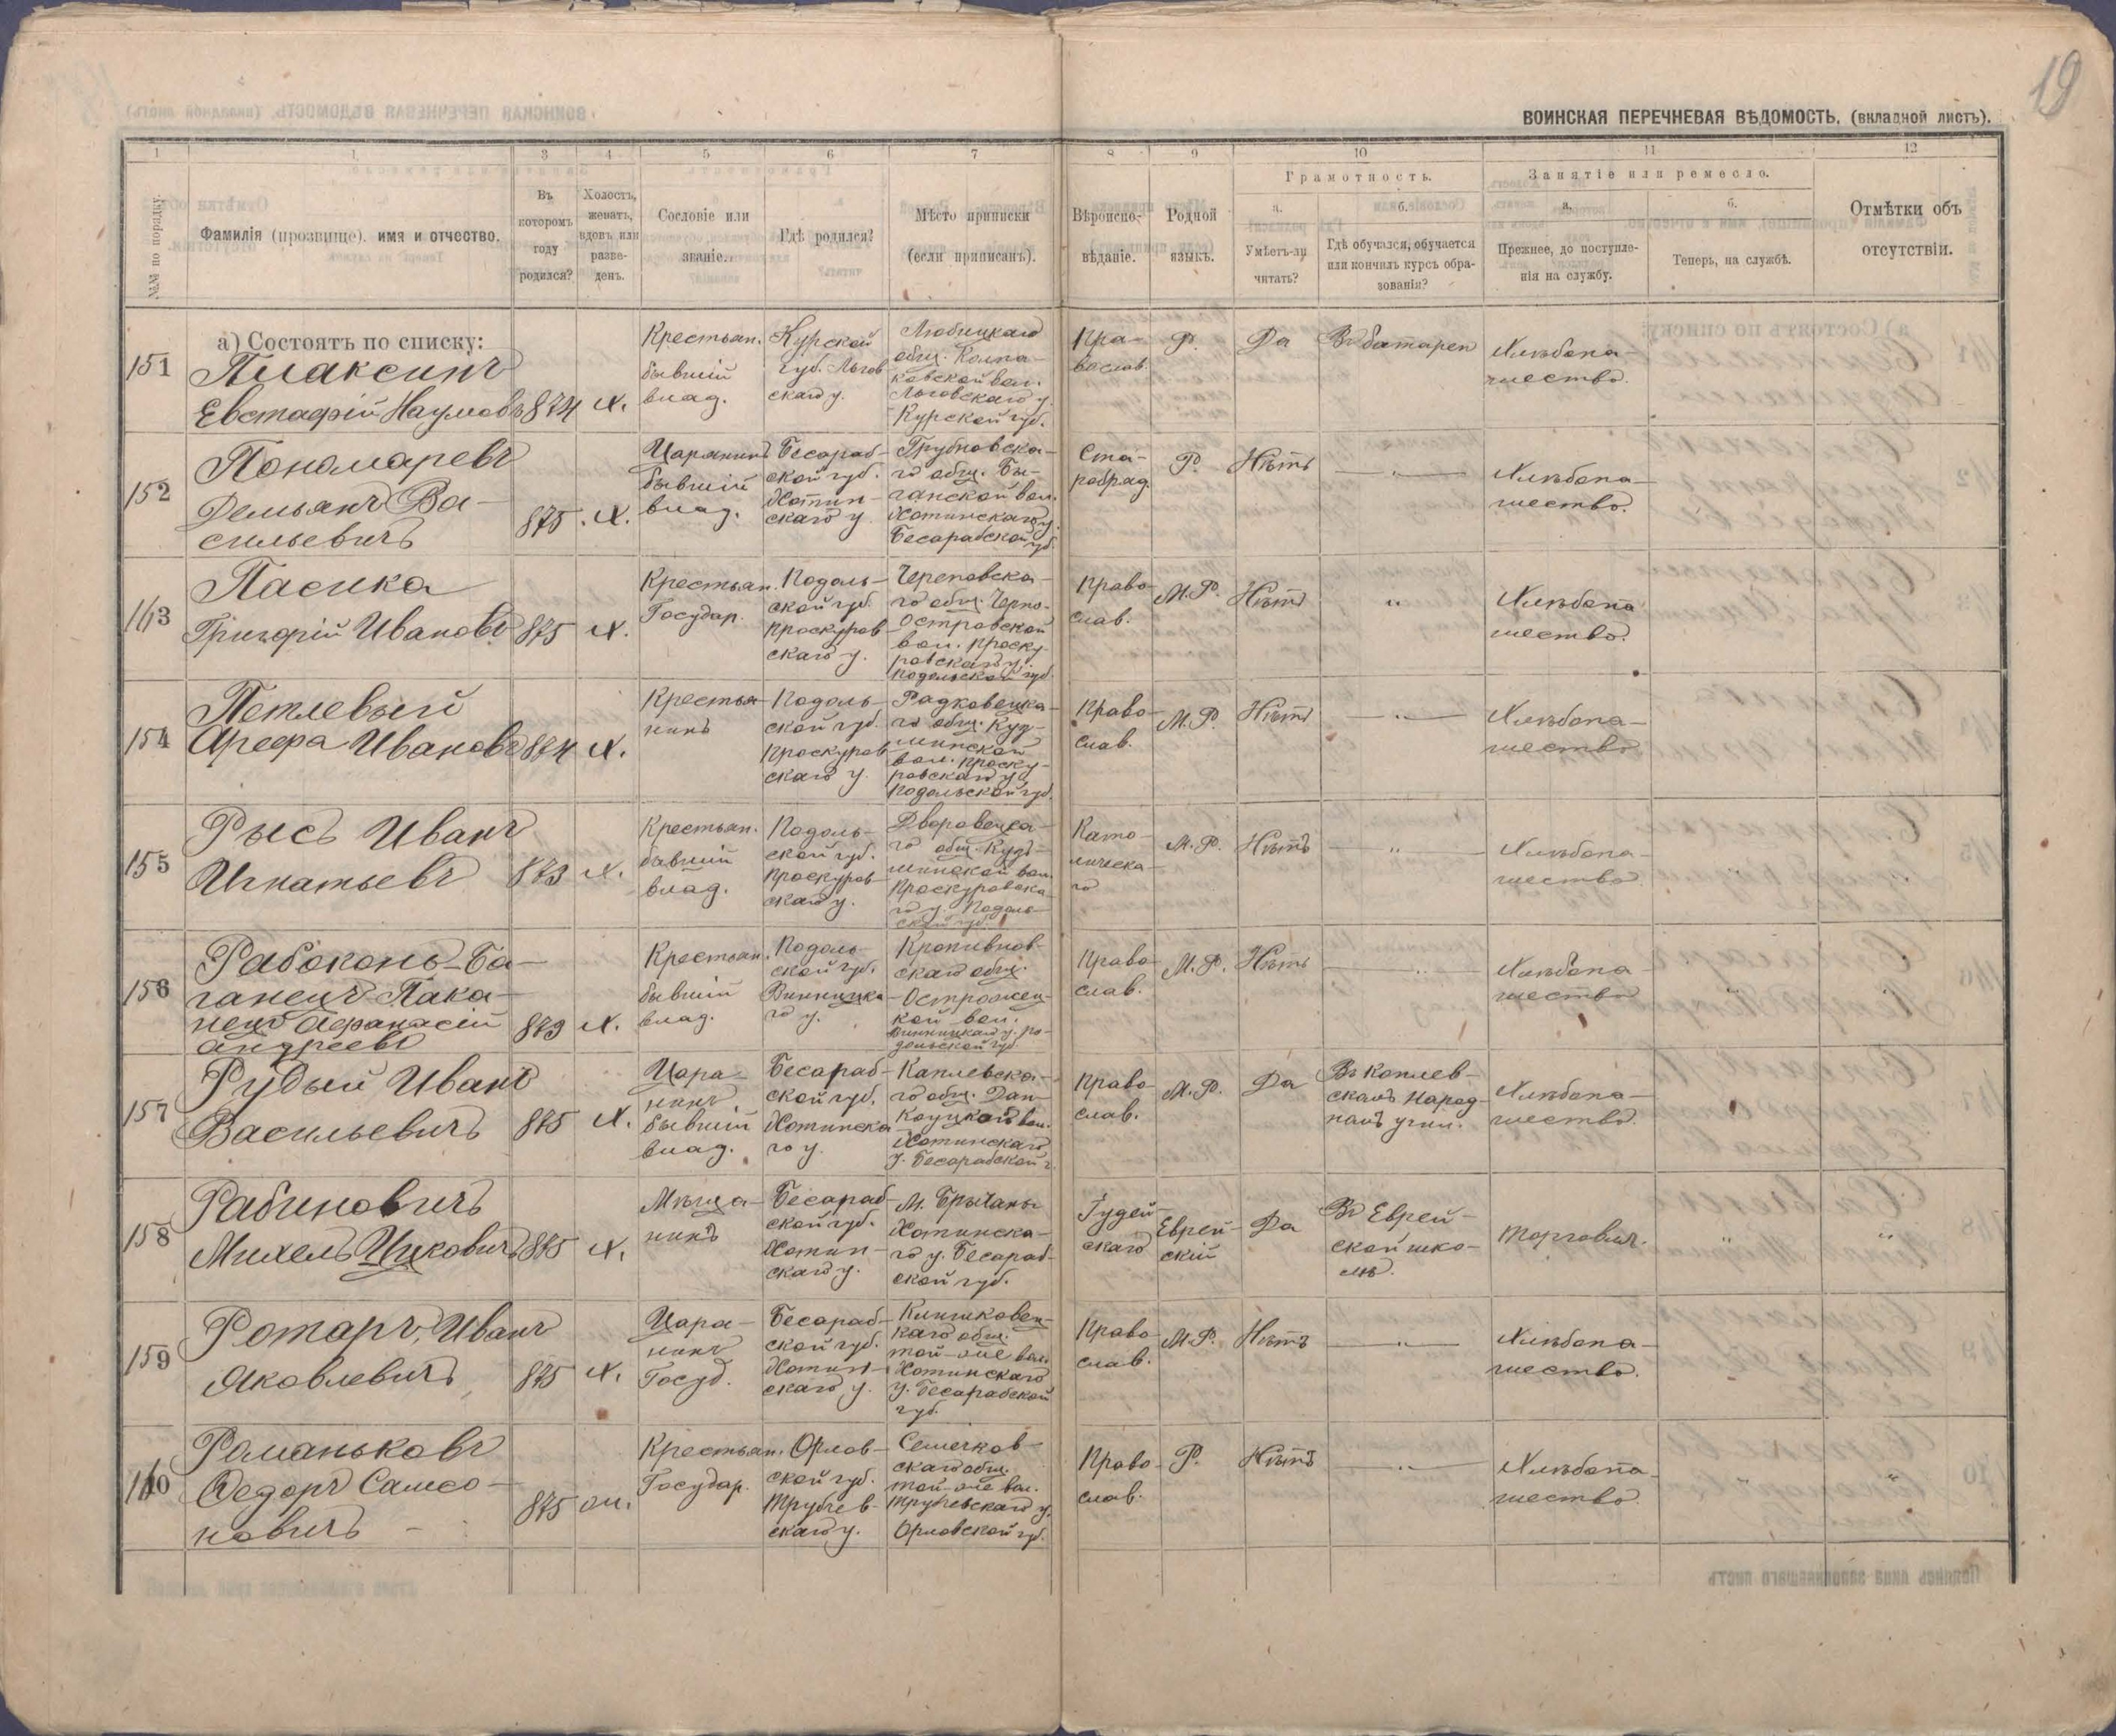 19
ВОИНСКАЯ ПЕРЕЧНЕВАЯ ВѢДОМОСТЬ. (вкладной листъ).
1 1. 3 4 5 6 7 8 9 10 11 12
№№ по порядку.
Фамилія (прозвище). имя и отчество.
Въ
которомъ
году
родился?
Холостъ,
женатъ,
вдовъ или
разве-
денъ.
Сословіе или
званіе.
Гдѣ родился?
Мѣсто приписки
(если приписанъ).
Вѣроиспо-
вѣданіе.
Родной
языкъ.
Грамотность.
а.
Умѣетъ-ли
читать?
б.
Гдѣ обучался, обучается
или кончилъ курсъ обра-
зованія?
Занятіе или ремесло.
а.
Прежнее, до поступле-
нія на службу.
б.
Теперь, на службѣ.
Отмѣтки объ
отсутствіи.
а) Состоятъ по списку:
151
Плаксинъ
Евстафій Наумовъ
874
Х.
Крестьян.
бывшій
влад.
Курской
губ. Льгов
скаго у.
общ.
Льговскаго у.
Курской губ.
Пра-
вослав.
Р.
Да
Въ батареи
Хлѣбопа-
шество.
152
Пономаревъ
Демьянъ Ва-
сильевичъ
875.
Х.
Царанинъ
бывшій
влад.
Бесараб-
ской губ.
Хотин-
скаго у.
Грубновска-
го общ.
Хотинскаго у.
Бесарабской губ.
Ста-
робряд.
Р.
Нѣтъ
— „ —
Хлѣбопа-
шество.
163
Пасика
Григорій Ивановъ
875
Х.
Крестьян.
Государ.
Подоль-
ской губ.
Проскуров
скаго у.
Череповска-
го общ. Черно-
островской
вол. Проску-
ровскаго у.
Подольской губ.
Право-
слав.
М.Р.
Нѣтъ
„
Хлѣбопа
шество.
154
Петлевый
Арефа Ивановъ
874
Х.
Крестья-
нинъ
Подоль-
ской губ.
Проскуров
скаго у.
Радковецка-
го общ. Куз-
минской
вол. Проску-
ровскаго у.
Подольской губ.
Право-
слав.
М.Р.
Нѣтъ
— „ —
Хлѣбопа-
шество
155
Рысь Иванъ
Игнатьевъ
873
Х.
Крестьян.
бывшій
влад.
Подоль-
ской губ.
Проскуров-
скаго у.
го общ. Кузь-
минской вол.
Проскуровска-
го у. Подоль-
ской губ.
Като-
лическа-
го
М.Р.
Нѣтъ
— „ —
Хлѣбопа-
шество
156
Рабоконь-Ба-
ганецъ-Пака-
нецъ Афанасій
Андреевъ
873
Х.
Крестьян.
бывшій
влад.
Подоль-
ской губ.
Винницка-
го у.
Кропивнов-
скаго общ.
вол.
Винницкаго у. По-
дольской губ.
Право-
слав.
М.Р.
Нѣтъ
— „ —
Хлѣбопа-
шество
157
Рудый Иванъ
Васильевичъ
875
Х.
Цара-
нинъ,
бывшій
влад.
Бесараб-
ской губ.
Хотинска
го у.
Каплевска-
го общ. Дан-
коуцкой вол.
Хотинскаго
у. Бесарабской г.
Право-
слав.
М.Р.
Да
Въ Каплев-
скомъ Народ-
номъ учил.
Хлѣбопа-
шество.
158
Рабиновичъ
Михель Ицковичъ
875
Х.
Мѣща-
нинъ
Бесараб
ской губ.
Хотин-
скаго у.
М. Бричаны
Хотинска-
го у. Бесараб-
ской губ.
Іудей-
скаго
Еврей-
скій
Да
Въ Еврей-
ской шко-
лѣ.
Торговля.
159
Ротаръ, Иванъ
Яковлевичъ
875
Х.
Цара-
нинъ
Госуд.
Бесараб-
ской губ.
Хотин-
скаго у.
Клишковец-
каго общ.
той-же вол.
Хотинскаго
у. Бесарабской
губ.
Право
слав.
М.Р.
Нѣтъ
— „ —
Хлѣбопа-
шество.
160
Романьковъ
Федоръ Самсо-
новичъ
875
Крестьян.
Государ.
Орлов-
ской губ.
Трубчев-
скаго у.
Семечков-
скаго общ.
той-же вол.
Трубчевскаго у.
Орловской губ.
Право-
слав.
Р.
Нѣтъ
— „ —
Хлѣбопа-
шество.